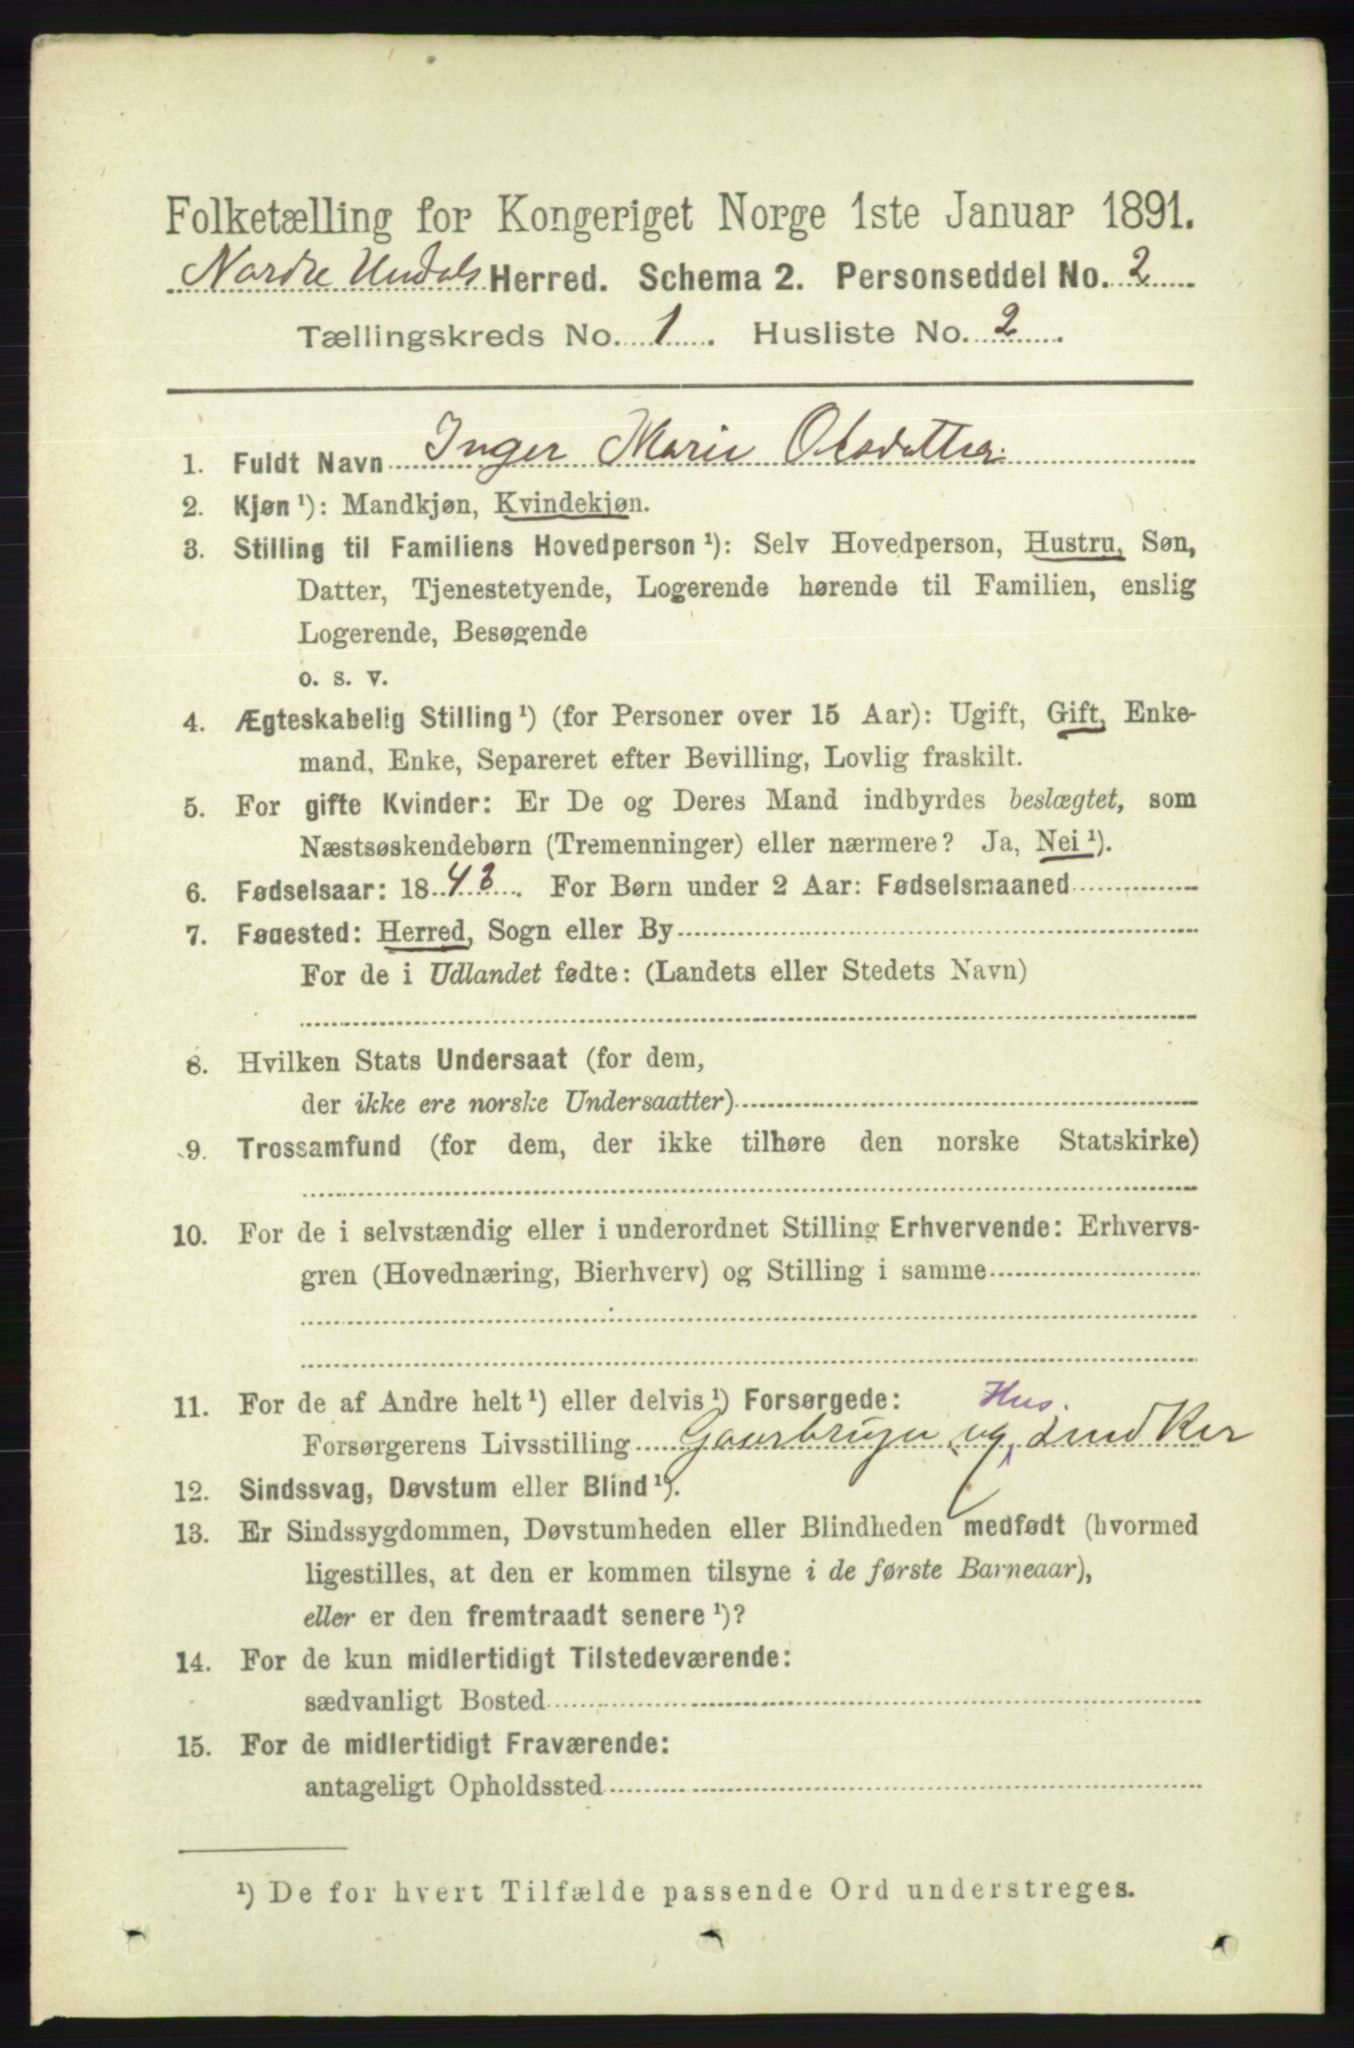 Folketælling for Kongeriget Norge 1ste Januar 1891.
Nordre Undals Herred. Schema 2. Personseddel No. 2
Tællingskreds No. 1. Husliste No. 2.
1. Fuldt Navn Inger Marie Olsdatter
2. Kjøn ¹): Mandkjøn, Kvindekjøn.
3. Stilling til Familiens Hovedperson ¹): Selv Hovedperson, Hustru, Søn,
Datter, Tjenestetyende, Logerende hørende til Familien, enslig
Logerende, Besøgende
o. s. v.
4. Ægteskabelig Stilling ¹) (for Personer over 15 Aar): Ugift, Gift, Enke-
mand, Enke, Separeret efter Bevilling, Lovlig fraskilt.
5. For gifte Kvinder: Er De og Deres Mand indbyrdes beslægtet, som
Næstsøskendebørn (Tremenninger) eller nærmere? Ja, Nei ¹).
6. Fødselsaar: 1843. For Børn under 2 Aar: Fødselsmaaned
7. Fødested: Herred, Sogn eller By
For de i Udlandet fødte: (Landets eller Stedets Navn)
8. Hvilken Stats Undersaat (for dem,
der ikke ere norske Undersaatter)
9. Trossamfund (for dem, der ikke tilhøre den norske Statskirke)
10. For de i selvstændig eller i underordnet Stilling Erhvervende: Erhvervs-
gren (Hovednæring, Bierhverv) og Stilling i samme
11. For de af Andre helt ¹) eller delvis ¹) Forsørgede: Hus.
Forsørgerens Livsstilling Gaardbruger og Snedker
12. Sindssvag, Døvstum eller Blind ¹).
13. Er Sindssygdommen, Døvstumheden eller Blindheden medfødt (hvormed
ligestilles, at den er kommen tilsyne i de første Barneaar),
eller er den fremtraadt senere ¹)?
14. For de kun midlertidigt Tilstedeværende:
sædvanligt Bosted
15. For de midlertidigt Fraværende:
antageligt Opholdssted
¹) De for hvert Tilfælde passende Ord understreges.